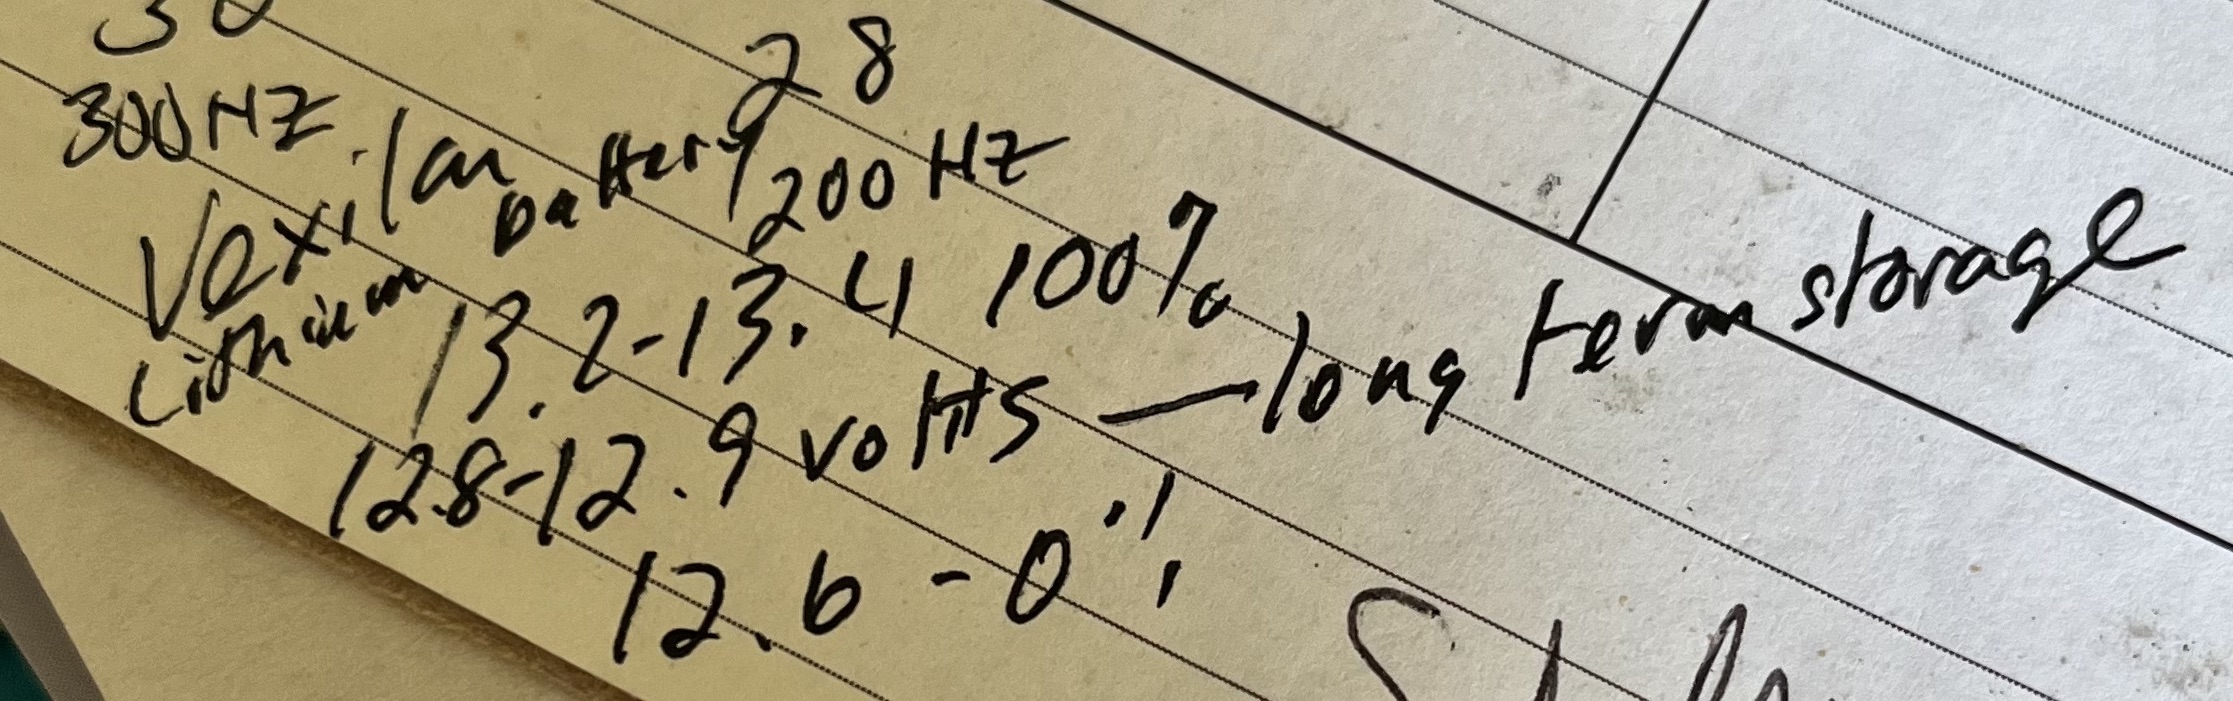 30
28
300 HZ
200 HZ
Vexilar battery
Lithium
13.2-13.4 100%
12.8-12.9 volts - long term storage
12.6 - 0%